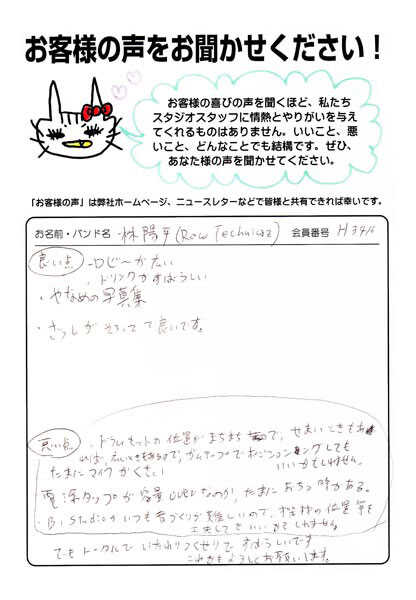 お客様の声をお聞かせください！
お客様の喜びの声を聞くほど、私たち
スタジオスタッフに情熱とやりがいを与
えてくれるものはありません。いいこと、悪
いこと、どんなことでも結構です。ぜひ、
あなた様の声を聞かせてください。
「お客様の声」は弊社ホームページ、ニュースレターなどで皆様と共有できれば幸いです。
お名前・バンド名 林陽平(Row Techniqz) 会員番号 H3416
良い点 ・ロビーが広い
・ドリンクがすばらしい
・やなめの写真集
・ざっしがそろってて良いです。
悪い点 ・ドラムセットの位置がまちまちなので、せまいときもあ
れば、広いときもあるので、ガムテープで
いいかもしれません。
たまにマイクがくさい
電源タップが容量 なのか、たまにおちる時がある。
・B1 Studioがいつも音づくりが難しいので、機材の位置等を
工夫してもいいかもしれません
でもトータルで すばらしいです
これからもよろしくお願いします。